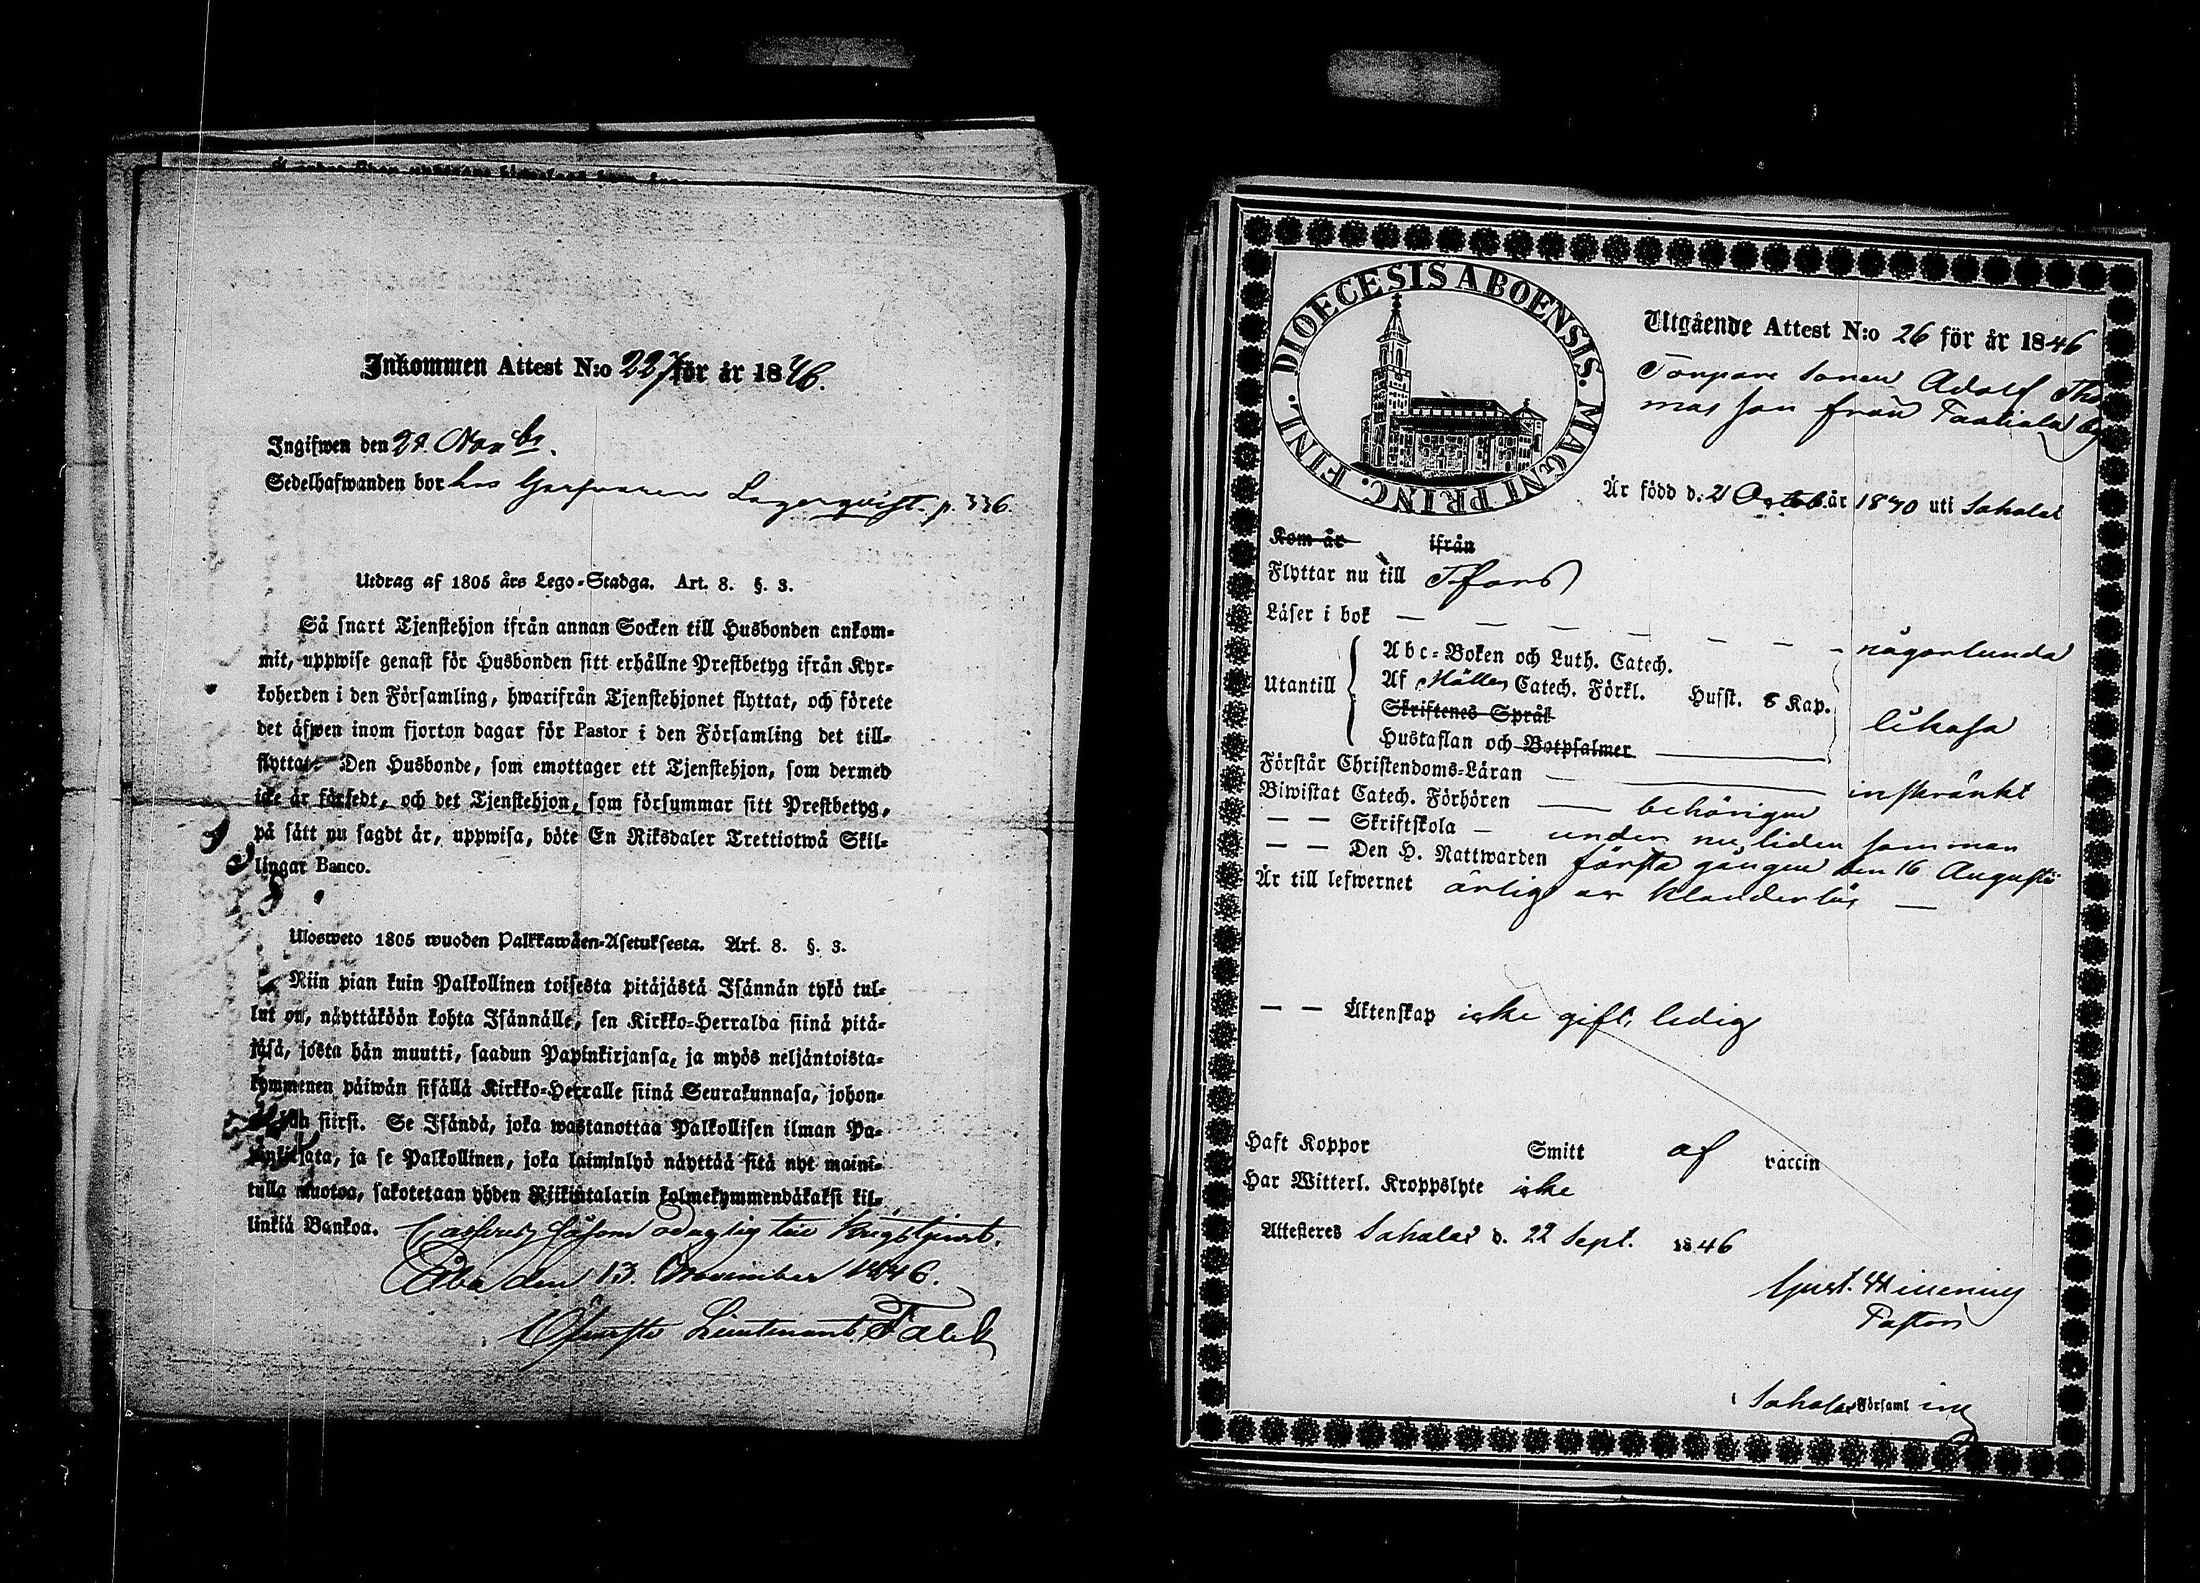 Inkommen Attest N:o 227 för år 1846.
Ingifwen den 21. Novbr.
Sedelhafwanden bor hos Garfvaren Lagerqvist. p. 336.
Utdrag af 1805 års Lego-Stadga. Art. 8. §. 3.
Så snart Tjenstehjon ifrån annan Socken till Husbonden ankom-
mit, uppwise genast för Husbonden sitt erhållne Prestbetyg ifrån Kyr-
koherden i den Församling, hwarifrån Tjenstehjonet flyttat, och förete
det äfwen inom fjorton dagar för Pastor i den Församling det till-
flyttat. Den Husbonde, som emottager ett Tjenstehjon, som dermed
icke är försedt, och det Tjenstehjon, som försummar sitt Prestbetyg,
på sätt nu sagdt är, uppwisa, böte En Riksdaler Trettiotwå Skil-
lingar Banco.
Ulosweto 1805 wuoden Palkkawäen-Asetuksesta. Art. 8. §. 3.
Niin pian kuin Palkollinen toisesta pitäjästä Isännän tykö tul-
lut on, näyttäköön kohta Isännälle, sen Kirkko-Herralda siinä pitä-
jäsä, josta hän muutti, saadun Papinkirjansa, ja myös neljäntoista-
kymmenen päiwän sisällä Kirkko-Herralle siinä Seurakunnasa, johon-
ga hän siirsi. Se Isändä, joka wastanottaa Palkollisen ilman Pa-
pinkirjata, ja se Palkollinen, joka laiminlyö näyttää sitä nyt maini-
tulla muotoa, sakotetaan yhden Riikintalarin kolmekymmendäkaksi kil-
linkiä Bankoa.
Casseras såsom oduglig till Krigstjenst.
Åbo den 13. November 1846.
Öfverste Lieutenant Falck
DIOECESIS ABOENSIS. MAGNI PRINC. FINL.
Utgående Attest N:o 26 för år 1846
Torpare sonen Adolf Tho
mas son från Taatiala by
Är född d. 21 Octob. år 1840 uti Sahalax
Kom år ifrån
Flyttar nu till T:fors
Läser i bok någorlunda
Abc-Boken och Luth. Catech.
Utantill Af Möllers Catech. Förkl. Hufst. 8 Kap.
Skriftenes Språk
likaså
Hustaflan och Botpsalmer
Förstår Christendoms-Läran inskränkt
Biwistat Catech. Förhören behörigen
Skriftskola under nu, liden sommar
Den H. Nattwarden första gången den 16 Augusti
Är till lefwernet ärlig oc klanderlös
Äktenskap icke gift, ledig
Haft Koppor Smitt af vaccin
Har Witterl. Kroppslyte icke
Attesteres Sahalax d. 22 Sept. 1846
Gust. Winning
Pastor
Sahalax Församling